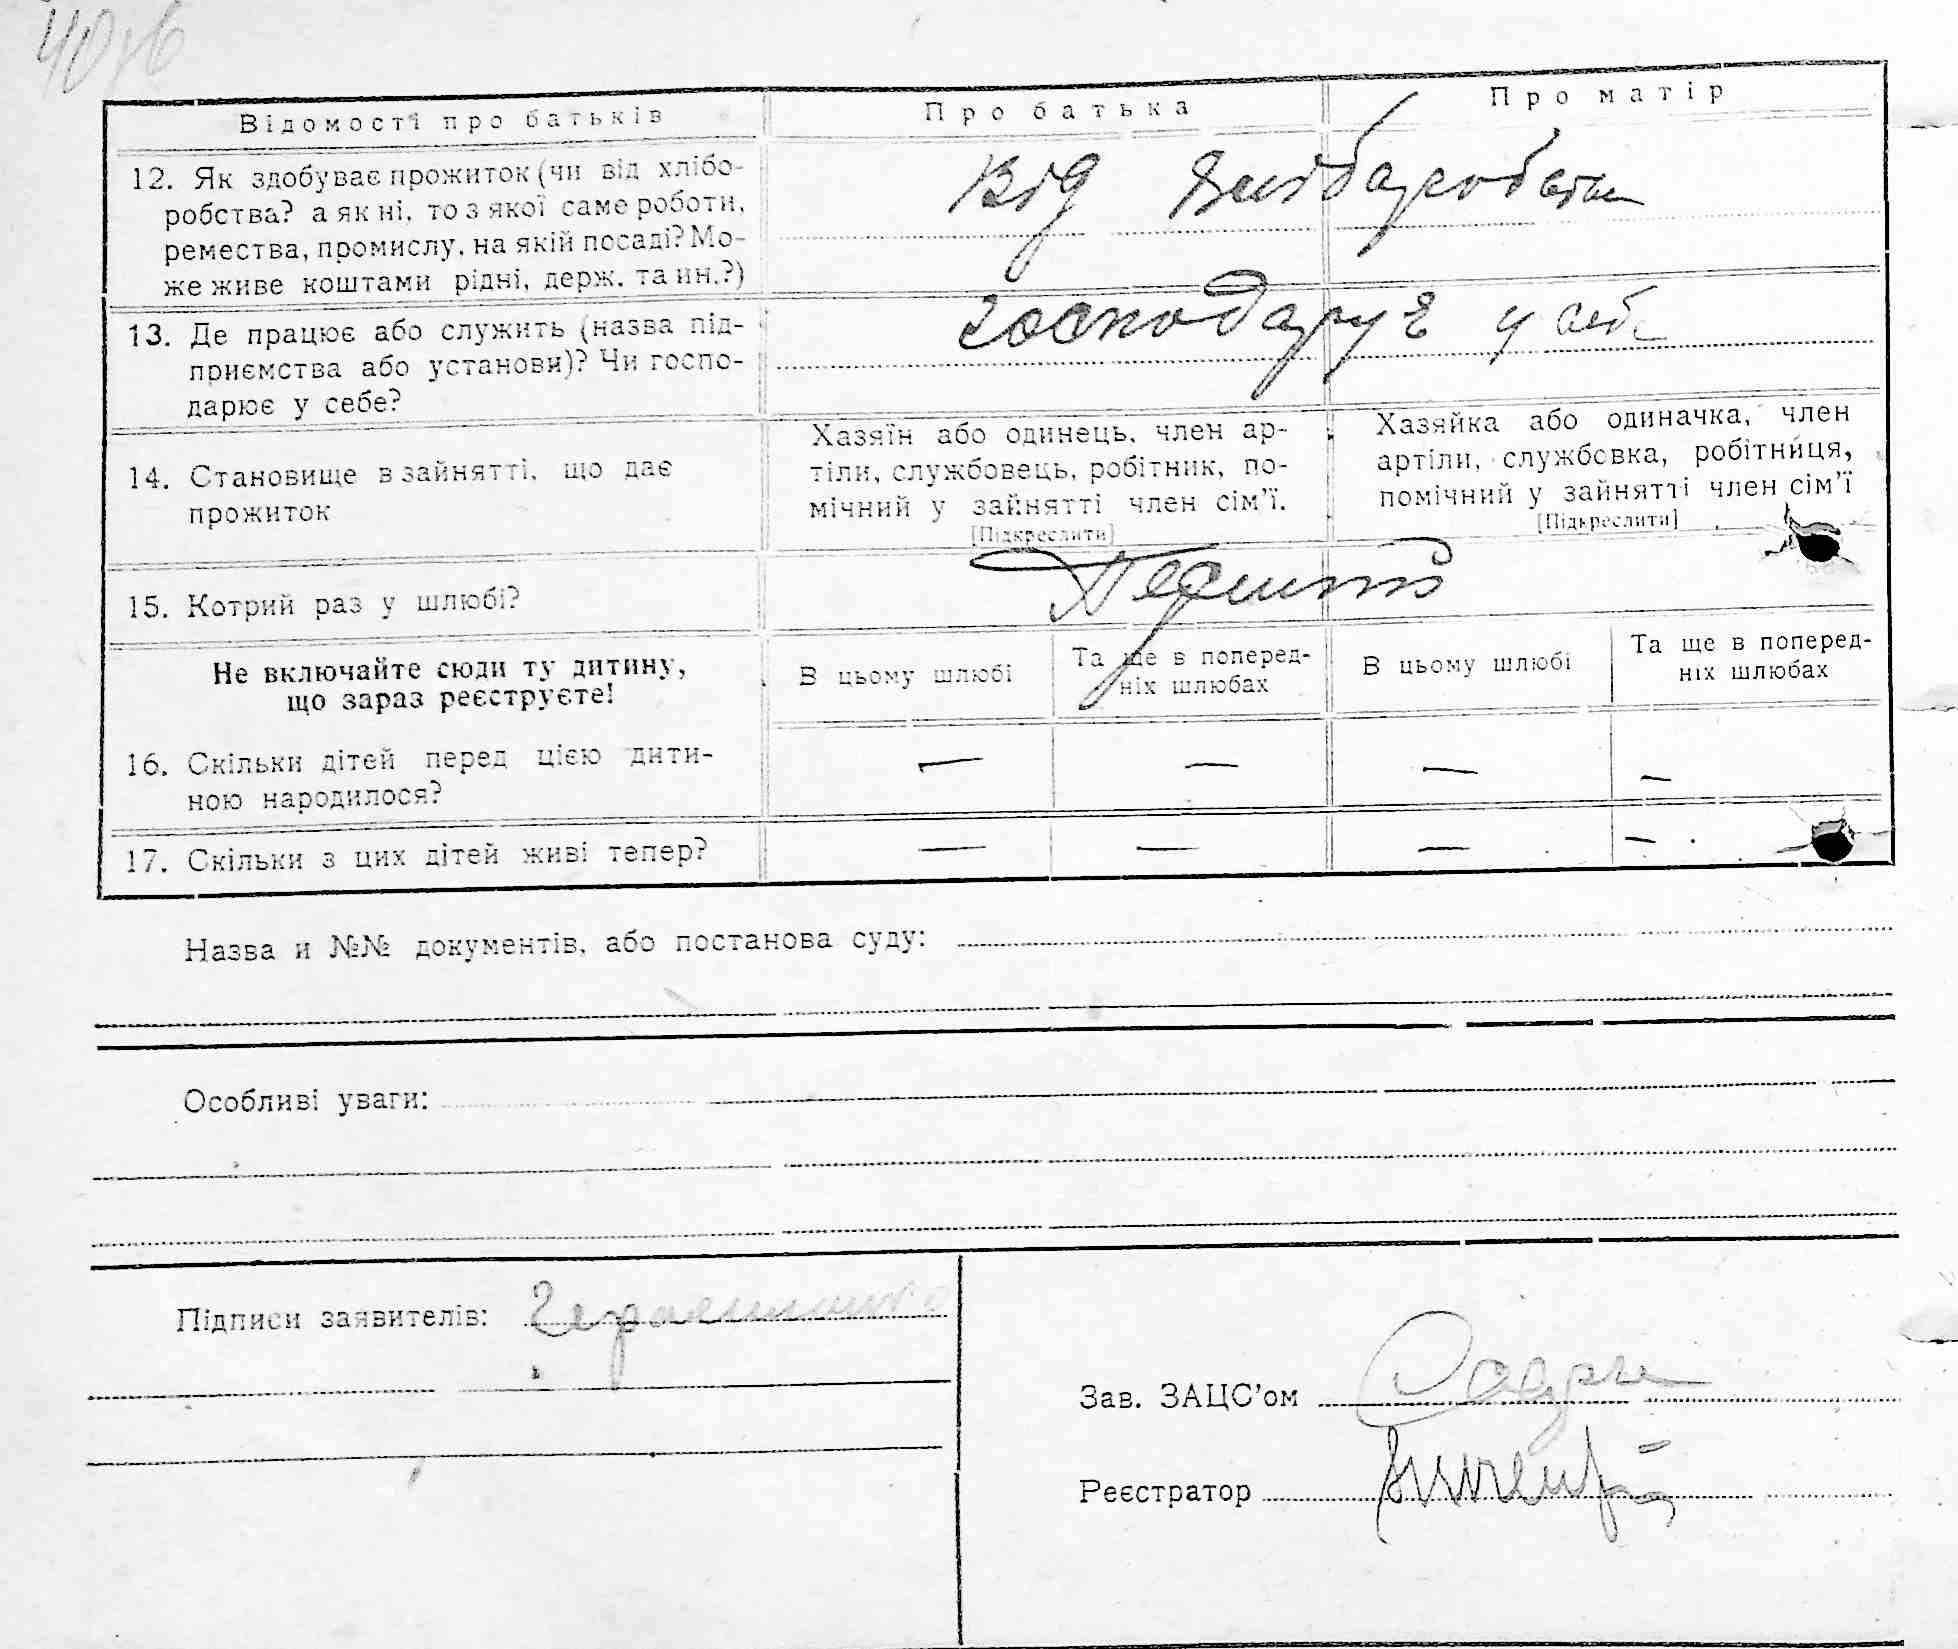 40 зв
Відомості про батьків
Про батька
Про матір
12. Як здобуває прожиток (чи від хлібо-
робства? а як ні, то з якої саме роботи,
ремества, промислу, на якій посаді? Мо-
же живе коштами рідні, держ. та ин.?)
Від хліборобства
13. Де працює або служить (назва під-
приємства або установи)? Чи госпо-
дарює у себе?
господарує у себе
14. Становище в зайнятті, що дає
прожиток
Хазяїн або одинець, член ар-
тіли, службовець, робітник, по-
мічний у зайнятті член сім'ї.
[Підкреслити]
Хазяйка або одиначка, член
артіли, службовка, робітниця,
помічний у зайнятті член сім'ї
[Підкреслити]
15. Котрий раз у шлюбі?
Перший
Не включайте сюди ту дитину,
що зараз реєструєте!
В цьому шлюбі
Та ще в поперед-
ніх шлюбах
В цьому шлюбі
Та ще в поперед-
ніх шлюбах
16. Скільки дітей перед цією дити-
ною народилося?
— — — —
17. Скільки з цих дітей живі тепер?
— — — —
Назва и №№ документів, або постанова суду:
Особливі уваги:
Підписи заявителів:
Зав. ЗАЦС'ом
Реєстратор